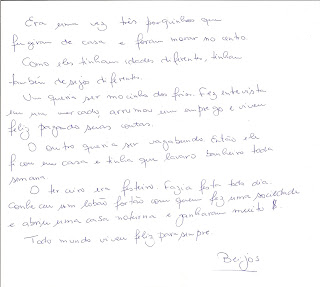 Era uma vez três porquinhos que
fugiram de casa e foram morar no centro.
Como eles tinham idades diferentes, tinham
também desejos diferentes.
Um queria ser mocinha dos frios. Fez entrevista
em um mercado, arrumou um emprego e viveu
feliz pagando suas contas.
O outro queria ser vagabundo. Então ele
ficou em casa e tinha que lavar o banheiro toda
semana.
O terceiro era festeiro. Fazia festa todo dia.
Conheceu um lobão fortão com quem fez uma sociedade
e abriu uma casa noturna e ganharam muito $.
Todo mundo viveu feliz para sempre.
Beijos